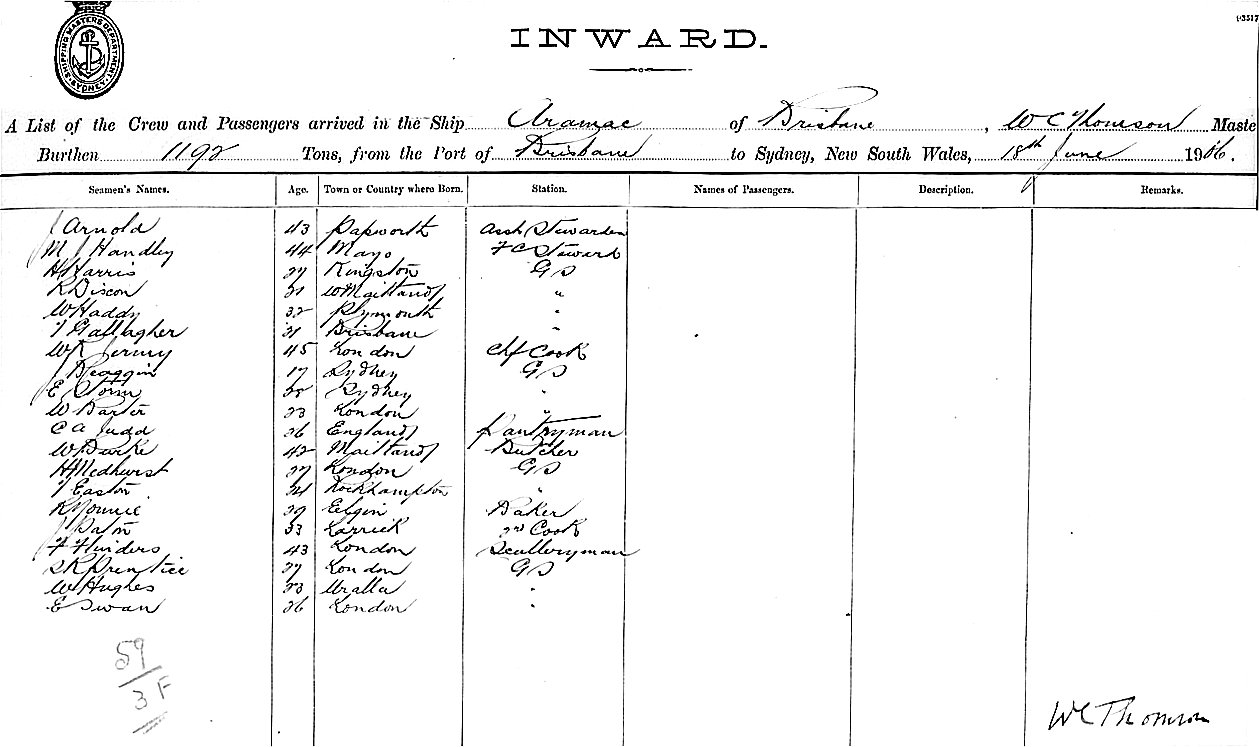 SHIPPING MASTERS DEPARTMENT. SYDNEY.
INWARD.
A List of the Crew and Passengers arrived in the Ship Aramac of Brisbane, W C Thomson Maste
Burthen 1192 Tons, from the Port of Brisbane to Sydney, New South Wales, 18th June 1906.
Seamen's Names. Age. Town or Country where Born. Station. Names of Passengers. Description. Remarks.
J Arnold 43 Papworth Asst Stewardess
M J Handley 44 Mayo F C Steward
H Harris 27 Kingston G S
R Dixon 21 W Maitland "
W Haddy 32 Plymouth "
T Gallagher 31 Brisbane "
W R Jermy 45 London Chf Cook
J 17 Sydney G S
E Storm 28 Sydney "
W Baxter 23 London "
C A Judd 36 England Pantryman
W Burke 42 Maitland Butcher
H Medhurst 27 London G S
T Easton 24 Rockhampton "
R 39 Elgin Baker
J Paton 33 2nd Cook
F Flinders 43 London Sculleryman
S R Prentice 27 London G S
W Hughes 23 Uralla "
E Swan 26 London "
59
3 F
W C Thomson